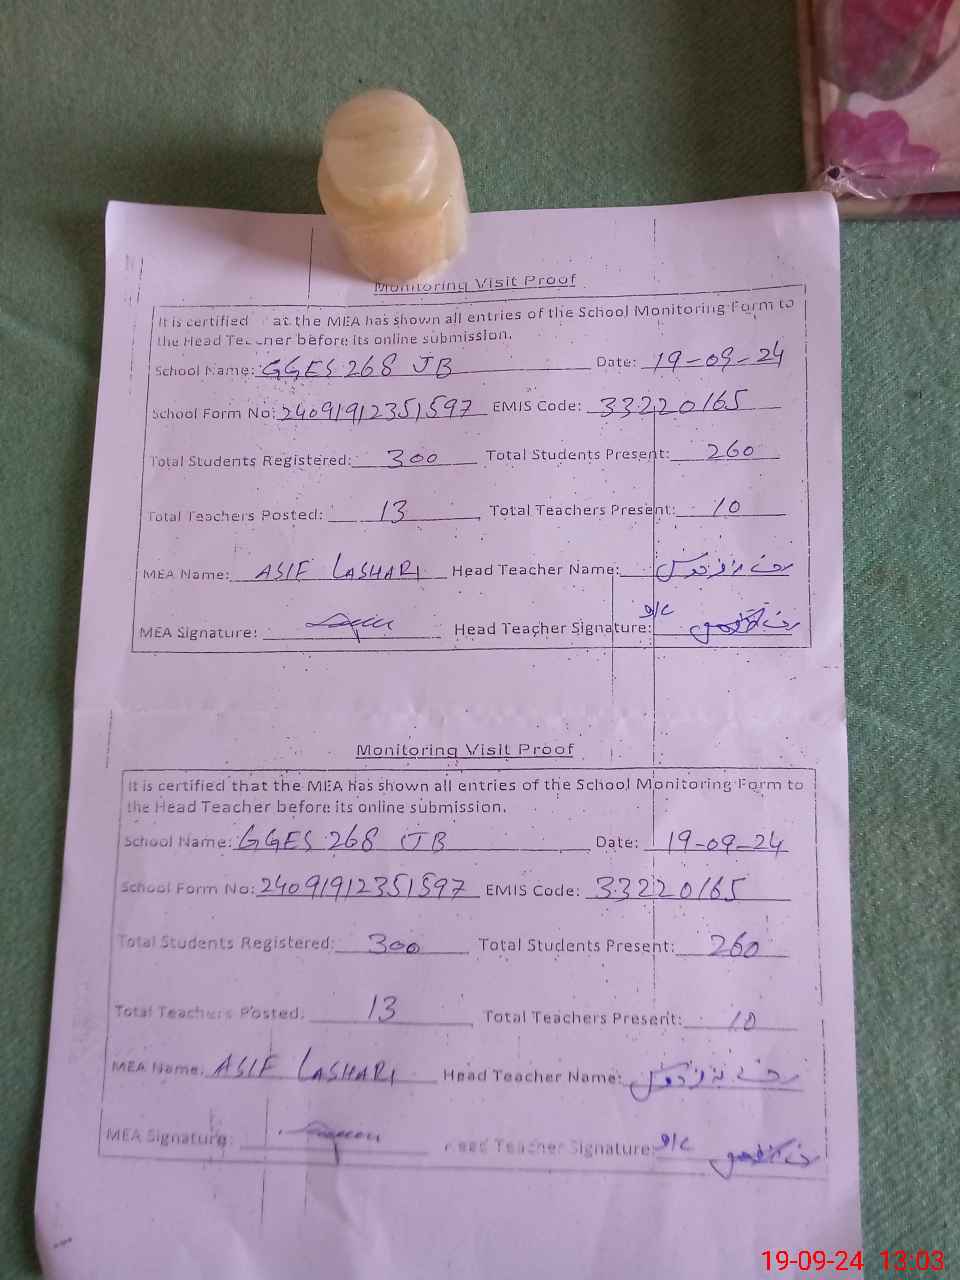 Monitoring Visit Proof
It is certified at the MEA has shown all entries of the School Monitoring Form to
the Head Teacher before its online submission.
School Name: GGES 268 JB Date: 19-09-24
School Form No: 24091912351597 EMIS Code: 33220165
Total Students Registered: 300 Total Students Present: 260
Total Teachers Posted: 13 Total Teachers Present: 10
MEA Name: ASIF LASHARI Head Teacher Name:
MEA Signature: Head Teacher Signature:
Monitoring Visit Proof
It is certified that the MEA has shown all entries of the School Monitoring Form to
the Head Teacher before its online submission.
School Name: GGES 268 JB Date: 19-09-24
School Form No: 24091912351597 EMIS Code: 33220165
Total Students Registered: 300 Total Students Present: 260
Total Teachers Posted: 13 Total Teachers Present: 10
MEA Name: ASIF LASHARI Head Teacher Name:
MEA Signature: Head Teacher Signature:
19-09-24 13:03